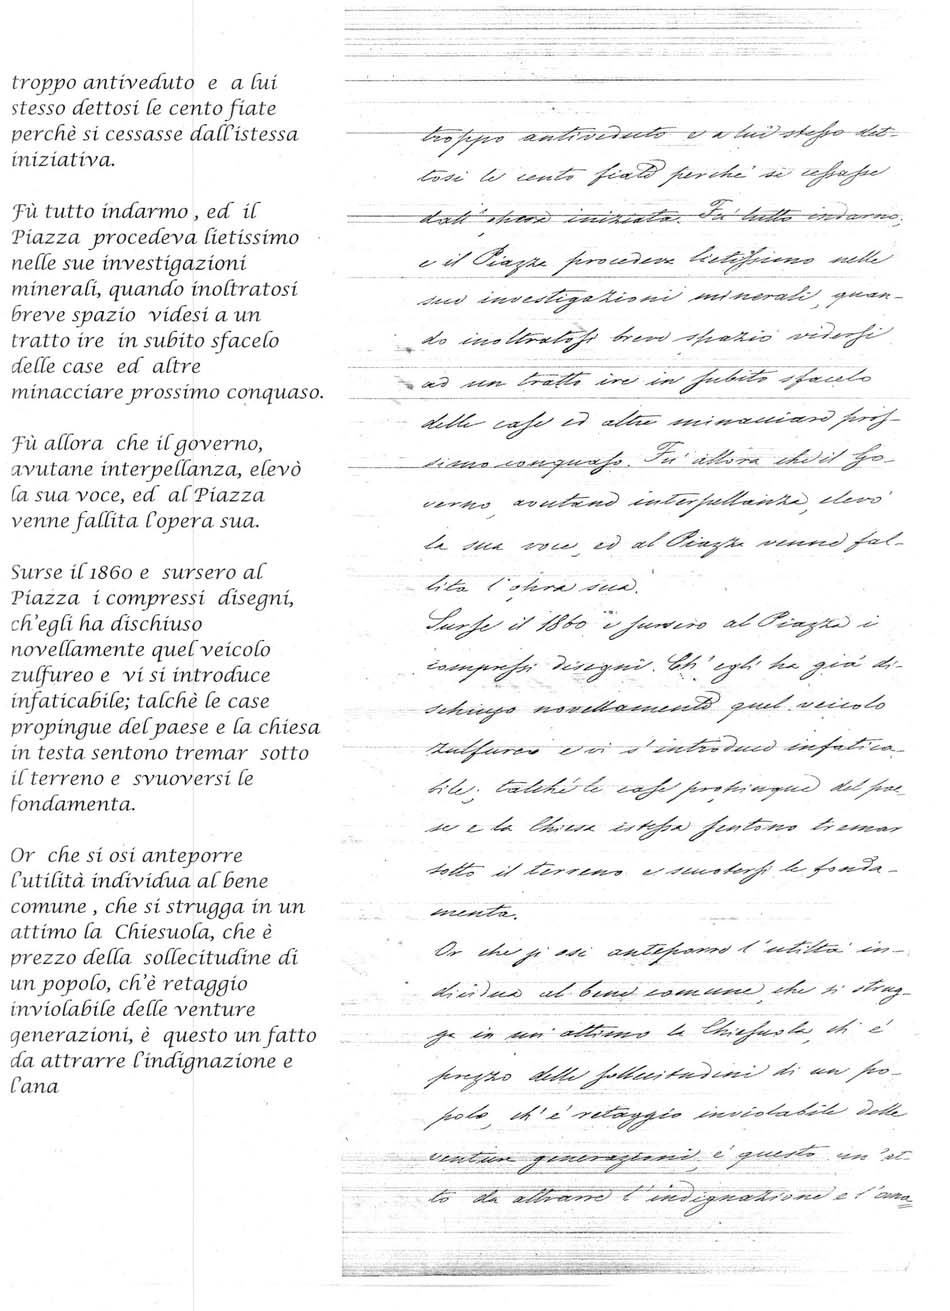 troppo antiveduto e a lui
stesso dettosi le cento fiate
perchè si cessasse dall'istessa
iniziativa.
Fù tutto indarmo , ed il
Piazza procedeva lietissimo
nelle sue investigazioni
minerali, quando inoltratosi
breve spazio videsi a un
tratto ire in subito sfacelo
delle case ed altre
minacciare prossimo conquaso.
Fù allora che il governo,
avutane interpellanza, elevò
la sua voce, ed al Piazza
venne fallita l'opera sua.
Surse il 1860 e sursero al
Piazza i compressi disegni,
ch'egli ha dischiuso
novellamente quel veicolo
zulfureo e vi si introduce
infaticabile; talchè le case
propingue del paese e la chiesa
in testa sentono tremar sotto
il terreno e svuoversi le
fondamenta.
Or che si osi anteporre
l'utilità individua al bene
comune , che si strugga in un
attimo la Chiesuola, che è
prezzo della sollecitudine di
un popolo, ch'è retaggio
inviolabile delle venture
generazioni, è questo un fatto
da attrarre l'indignazione e
l'ana
troppo antiveduto e a lui stesso det-
tosi le cento fiate perché si cessasse
dall' iniziata. Fu' tutto indarno,
e il Piazza procedeva lietissimo nelle
sue investigazioni minerali, quan-
do inoltratosi breve spazio vidersi
ad un tratto ire in subito sfacelo
delle case ed altre minacciare pros-
simo conquasso. Fu' allora che il Go-
verno, avutane interpellanza, elevò
la sua voce, ed al Piazza venne fal-
lita l'opra sua.
Surse il 1860 e sursero al Piazza i
compressi disegni. Ch' egli ha già di-
schiuso novellamente quel veicolo
zulfureo e vi s'introduce infatica-
bile; talché le case propinque del pae-
se e la Chiesa istessa sentono tremar
sotto il terreno e scuotersi le fonda-
menta.
Or che si osi anteporre l'utilità in-
dividua al bene comune, che si strug-
ga in un attimo la Chiesuola, ch' è
prezzo delle sollecitudini di un po-
polo, ch' è retaggio inviolabile delle
venture generazioni, è questo un at-
to da attrarre l'indignazione e l'ana